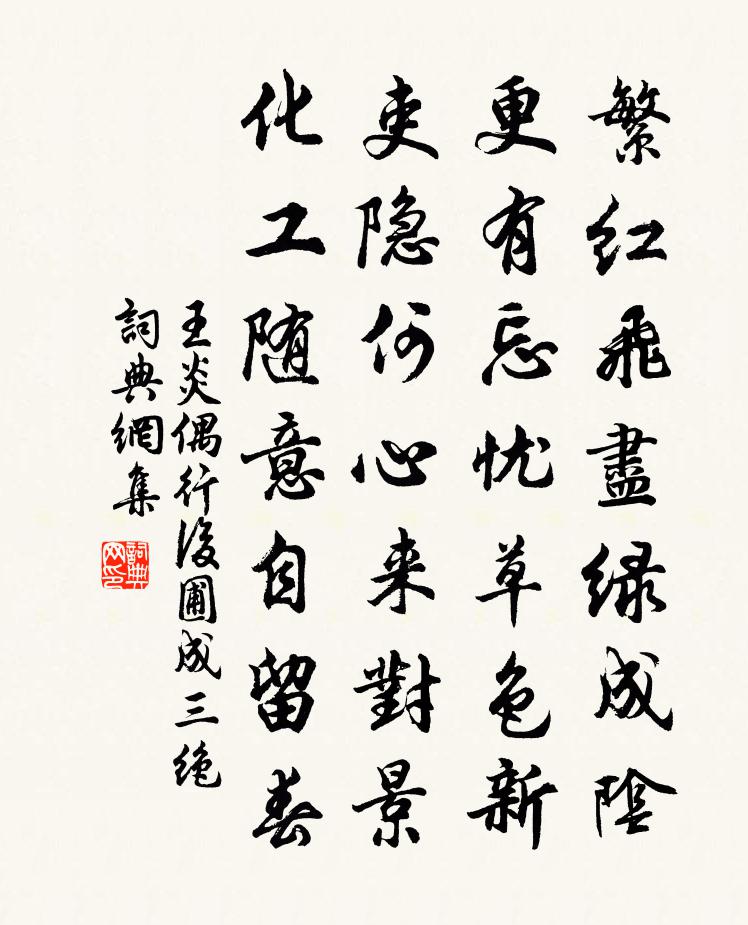 繁红飛盡绿成陰
更有忘忧草色新
吏隐何心来對景
化工随意自留春
王炎偶行後圃成三绝
詞典網集
詞典网印